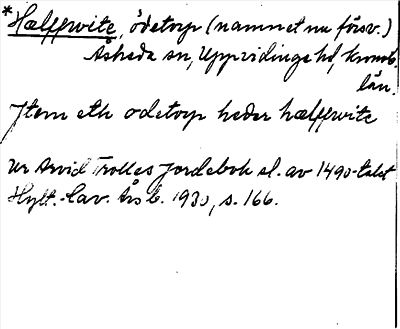 *Hælffwite, ödetorp (namnet nu försv.)
Asheda sn, Uppvidinge hd, Kronob.
län.
Jtem eth odetorp heder hælffwite
Ur Arvid Trolles Jordebok sl. av 1490-talet
Hylt.-Cav. Årsb. 1930, s. 166.